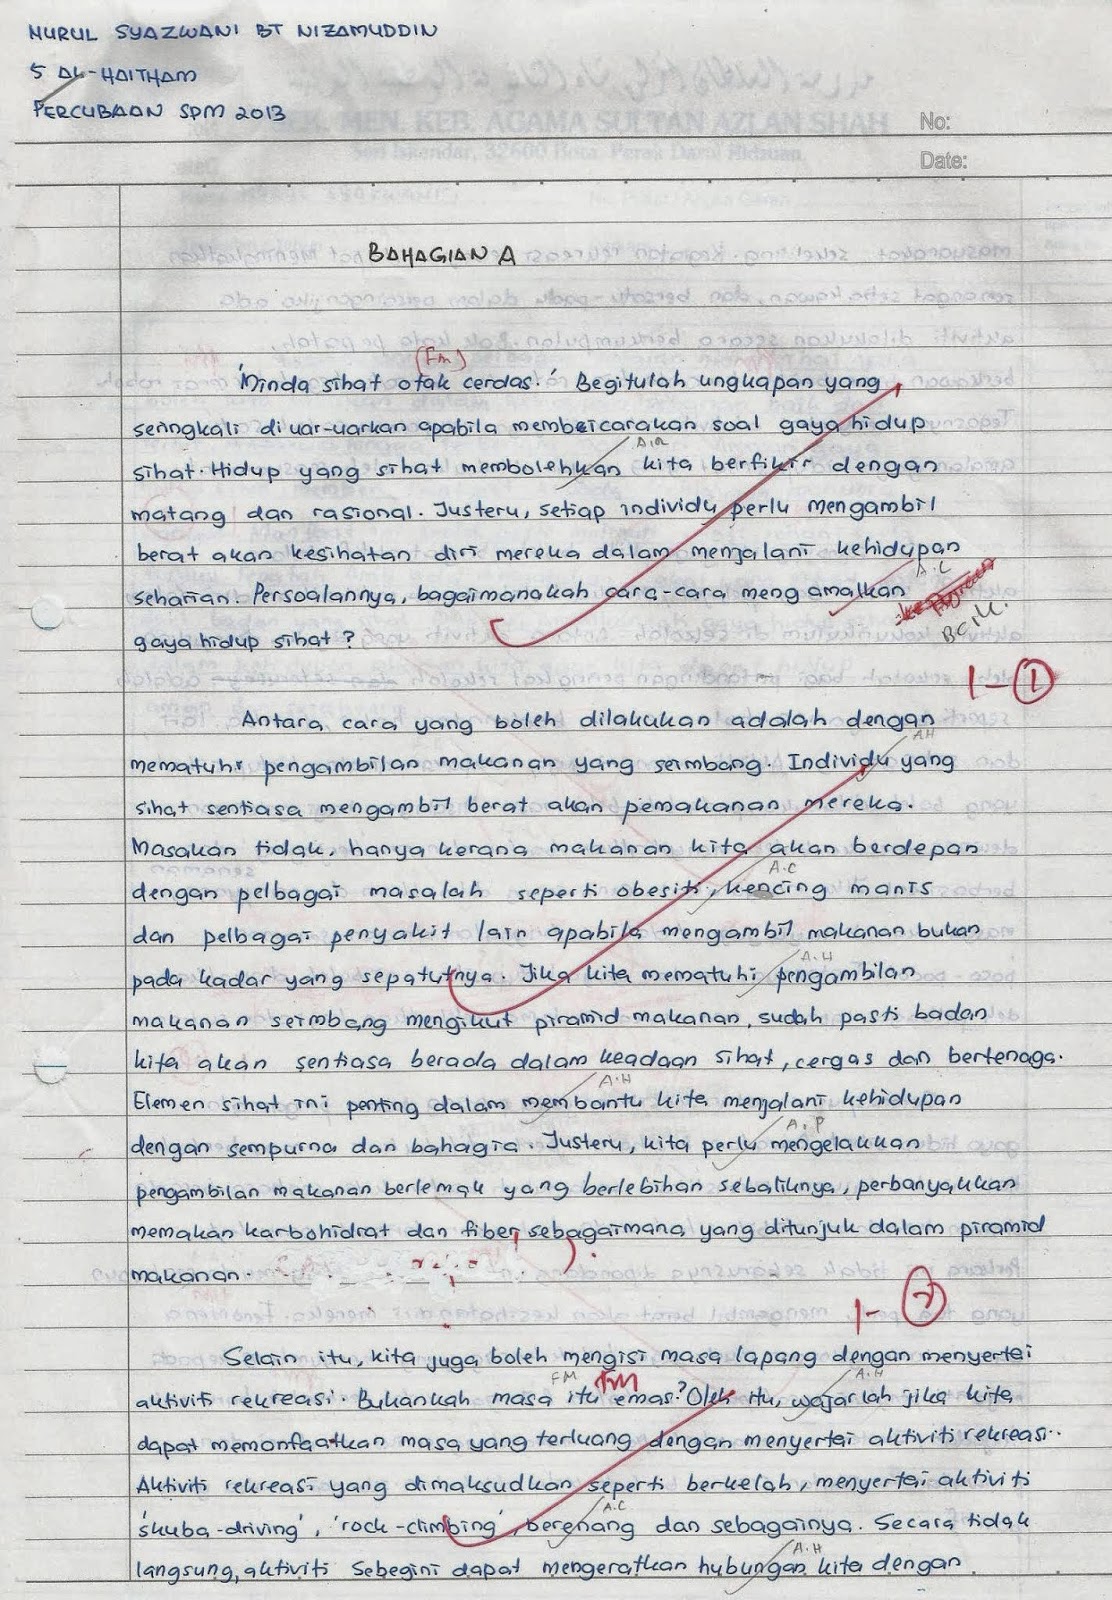 NURUL SYAZWANI BT NIZAMUDDIN
5 AL-HAITHAM
PERCUBAAN SPM 2013
SEK. MEN. KEB. AGAMA SULTAN AZLAN SHAH
Seri Iskandar, 32600 Bota, Perak Darul Ridzuan
No:
Date:
BAHAGIAN A
(FM)
'Minda sihat otak cerdas.' Begitulah ungkapan yang
seringkali diuar-uarkan apabila membicarakan soal gaya hidup
sihat. Hidup yang sihat membolehkan kita berfikir dengan
matang dan rasional. Justeru, setiap individu perlu mengambil
berat akan kesihatan diri mereka dalam menjalani kehidupan
A.C
seharian. Persoalannya, bagaimanakah cara-cara mengamalkan
gaya hidup sihat?
1-1
Antara cara yang boleh dilakukan adalah dengan
AH
mematuhi pengambilan makanan yang seimbang. Individu yang
sihat sentiasa mengambil berat akan pemakanan mereka.
Masakan tidak, hanya kerana makanan kita akan berdepan
A.C
dengan pelbagai masalah seperti obesiti, kencing manis
dan pelbagai penyakit lain apabila mengambil makanan bukan
A.H
pada kadar yang sepatutnya. Jika kita mematuhi pengambilan
makanan seimbang mengikut piramid makanan, sudah pasti badan
kita akan sentiasa berada dalam keadaan sihat, cergas dan bertenaga.
A.H
Elemen sihat ini penting dalam membantu kita menjalani kehidupan
A.P
dengan sempurna dan bahagia. Justeru, kita perlu mengelakkan
pengambilan makanan berlemak yang berlebihan sebaliknya, perbanyakkan
memakan karbohidrat dan fiber sebagaimana yang ditunjuk dalam piramid
makanan.
Selain itu, kita juga boleh mengisi masa lapang dengan menyertai
FM FM A.H
aktiviti rekreasi. Bukankah masa itu emas? Oleh itu, wajarlah jika kita
dapat memanfaatkan masa yang terluang dengan menyertai aktiviti rekreasi.
Aktiviti rekreasi yang dimaksudkan seperti berkelah, menyertai aktiviti
A.C
'skuba-driving', 'rock-climbing', berenang dan sebagainya. Secara tidak
A.H
langsung, aktiviti sebegini dapat mengeratkan hubungan kita dengan